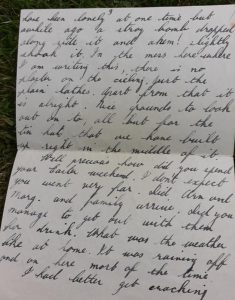 have been lovely at one time but
awhile ago a stray bomb dropped
along side it and ahem! slightly
shook it. In the mess here where
I am writing this, there is no
plaster on the ceiling just the
plain lathes. Apart from that it
is alright. Nice grounds to look
out on to, all but for the
tin hut that we have built
up right in the middle of it.
Well precious how did you spend
your Easter weekend. I don't expect
you went very far. Did
Marg. and family arrive, did you
manage to get out with them
for drink. What was the weather
like at home. It was raining off
and on here most of the time
I had better get cracking